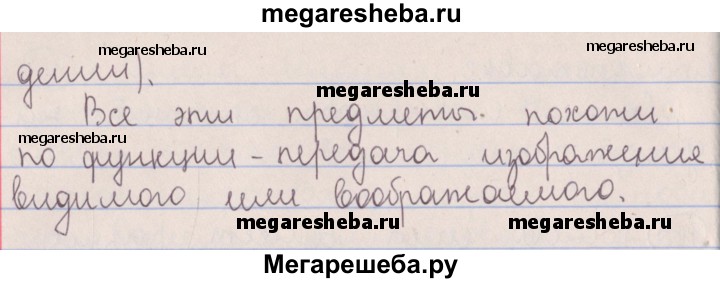 megaresheba.ru
megaresheba.ru megaresheba.ru
дении).
megaresheba.ru
Все эти предметы похожи
megaresheba.ru
по функции – передача изображения
видимого или воображаемого.
megaresheba.ru megaresheba.ru
Мегарешеба.ру